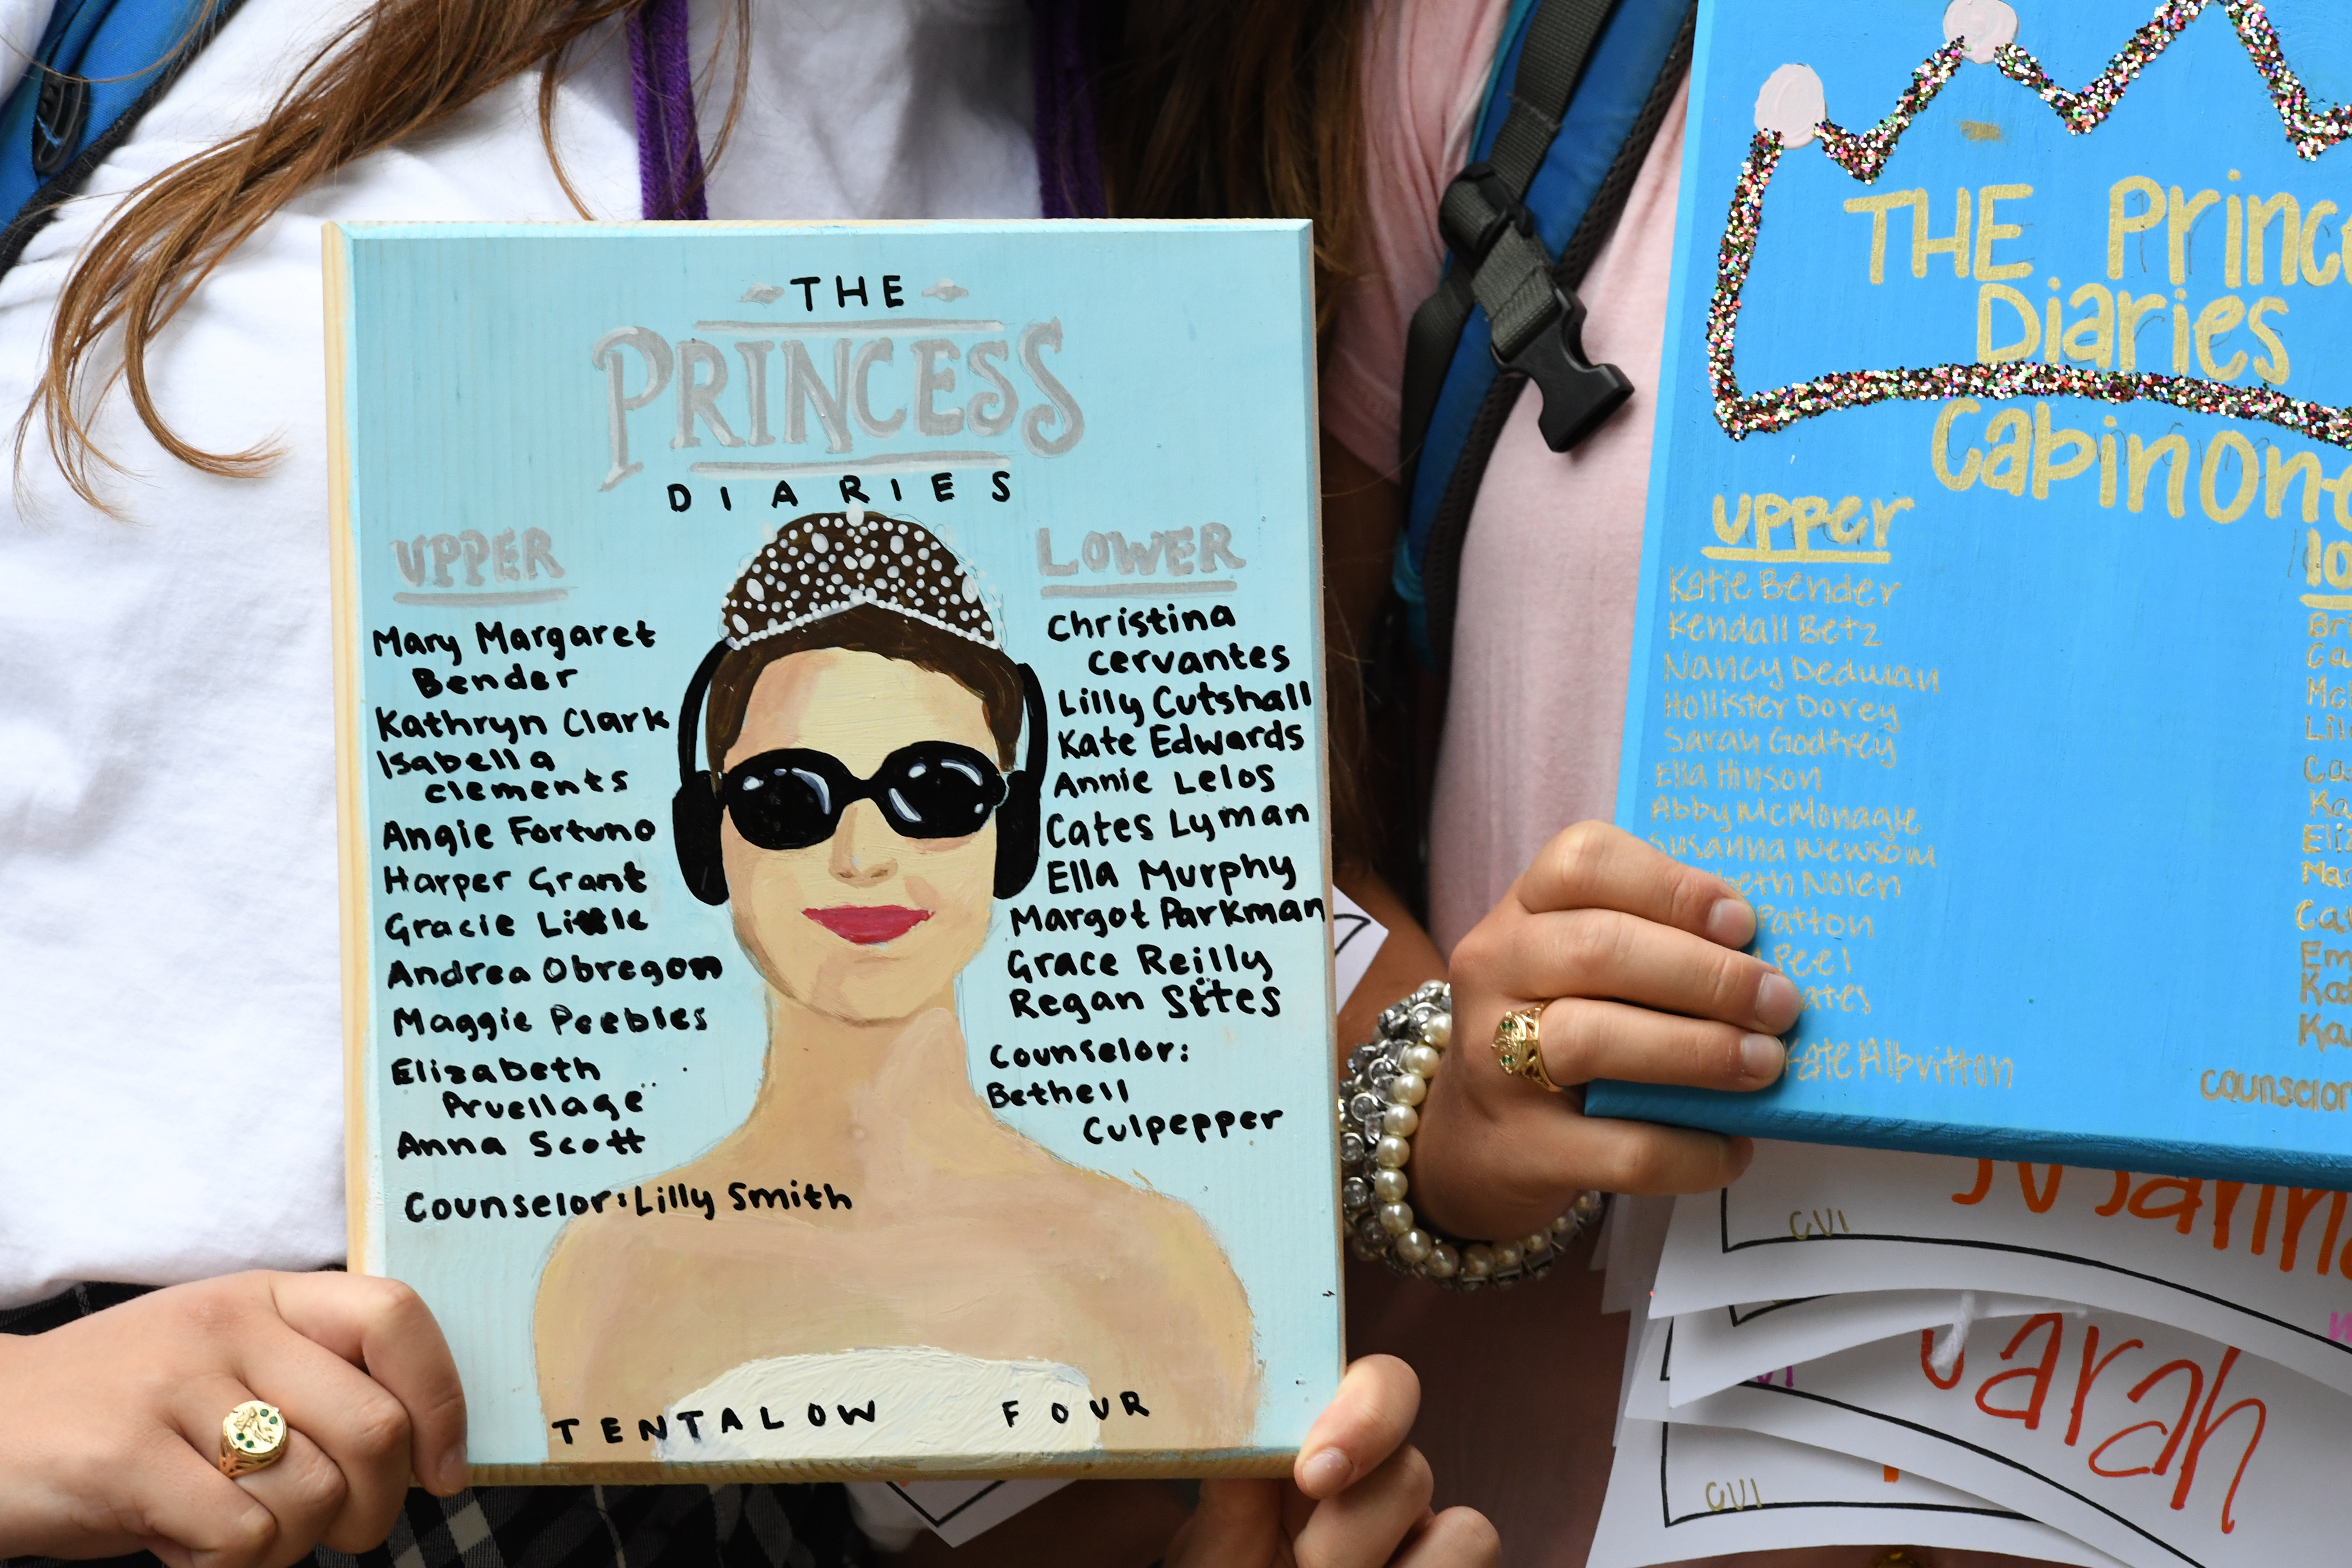 THE
PRINCESS
DIARIES
UPPER
Mary Margaret
Bender
Kathryn Clark
Isabella
Clements
Angie Fortuno
Harper Grant
Gracie Little
Andrea Obregon
Maggie Peebles
Elizabeth
Pruellage
Anna Scott
Counselor: Lilly Smith
LOWER
Christina
Cervantes
Lilly Cutshall
Kate Edwards
Annie Lelos
Cates Lyman
Ella Murphy
Margot Parkman
Grace Reilly
Regan Sites
Counselor:
Bethell
Culpepper
TENTALOW FOUR
THE Princ
Diaries
Cabin
upper
Katie Bender
Kendall Betz
Nancy Dedman
Hollister Dorey
Sarah Godfrey
Ella Hinson
Abby McMonagle
Susanna Newsom
beth Nolen
Patton
Peel
ates
Kate Albritton
lo
Bri
Ca
Mc
Lil
Ca
Ka
Eliz
Ma
Cat
Em
Kat
Ka
Counselor
CVI
Sarah
CVI